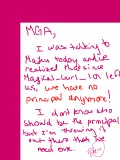 MGA,
I was talking to
Majku today and we
realized that since
Magical_Girl_101 left
us, we have no
principal anymore!
I don't know who
should be the principal
but I'm throwing it
out there that we
need one.